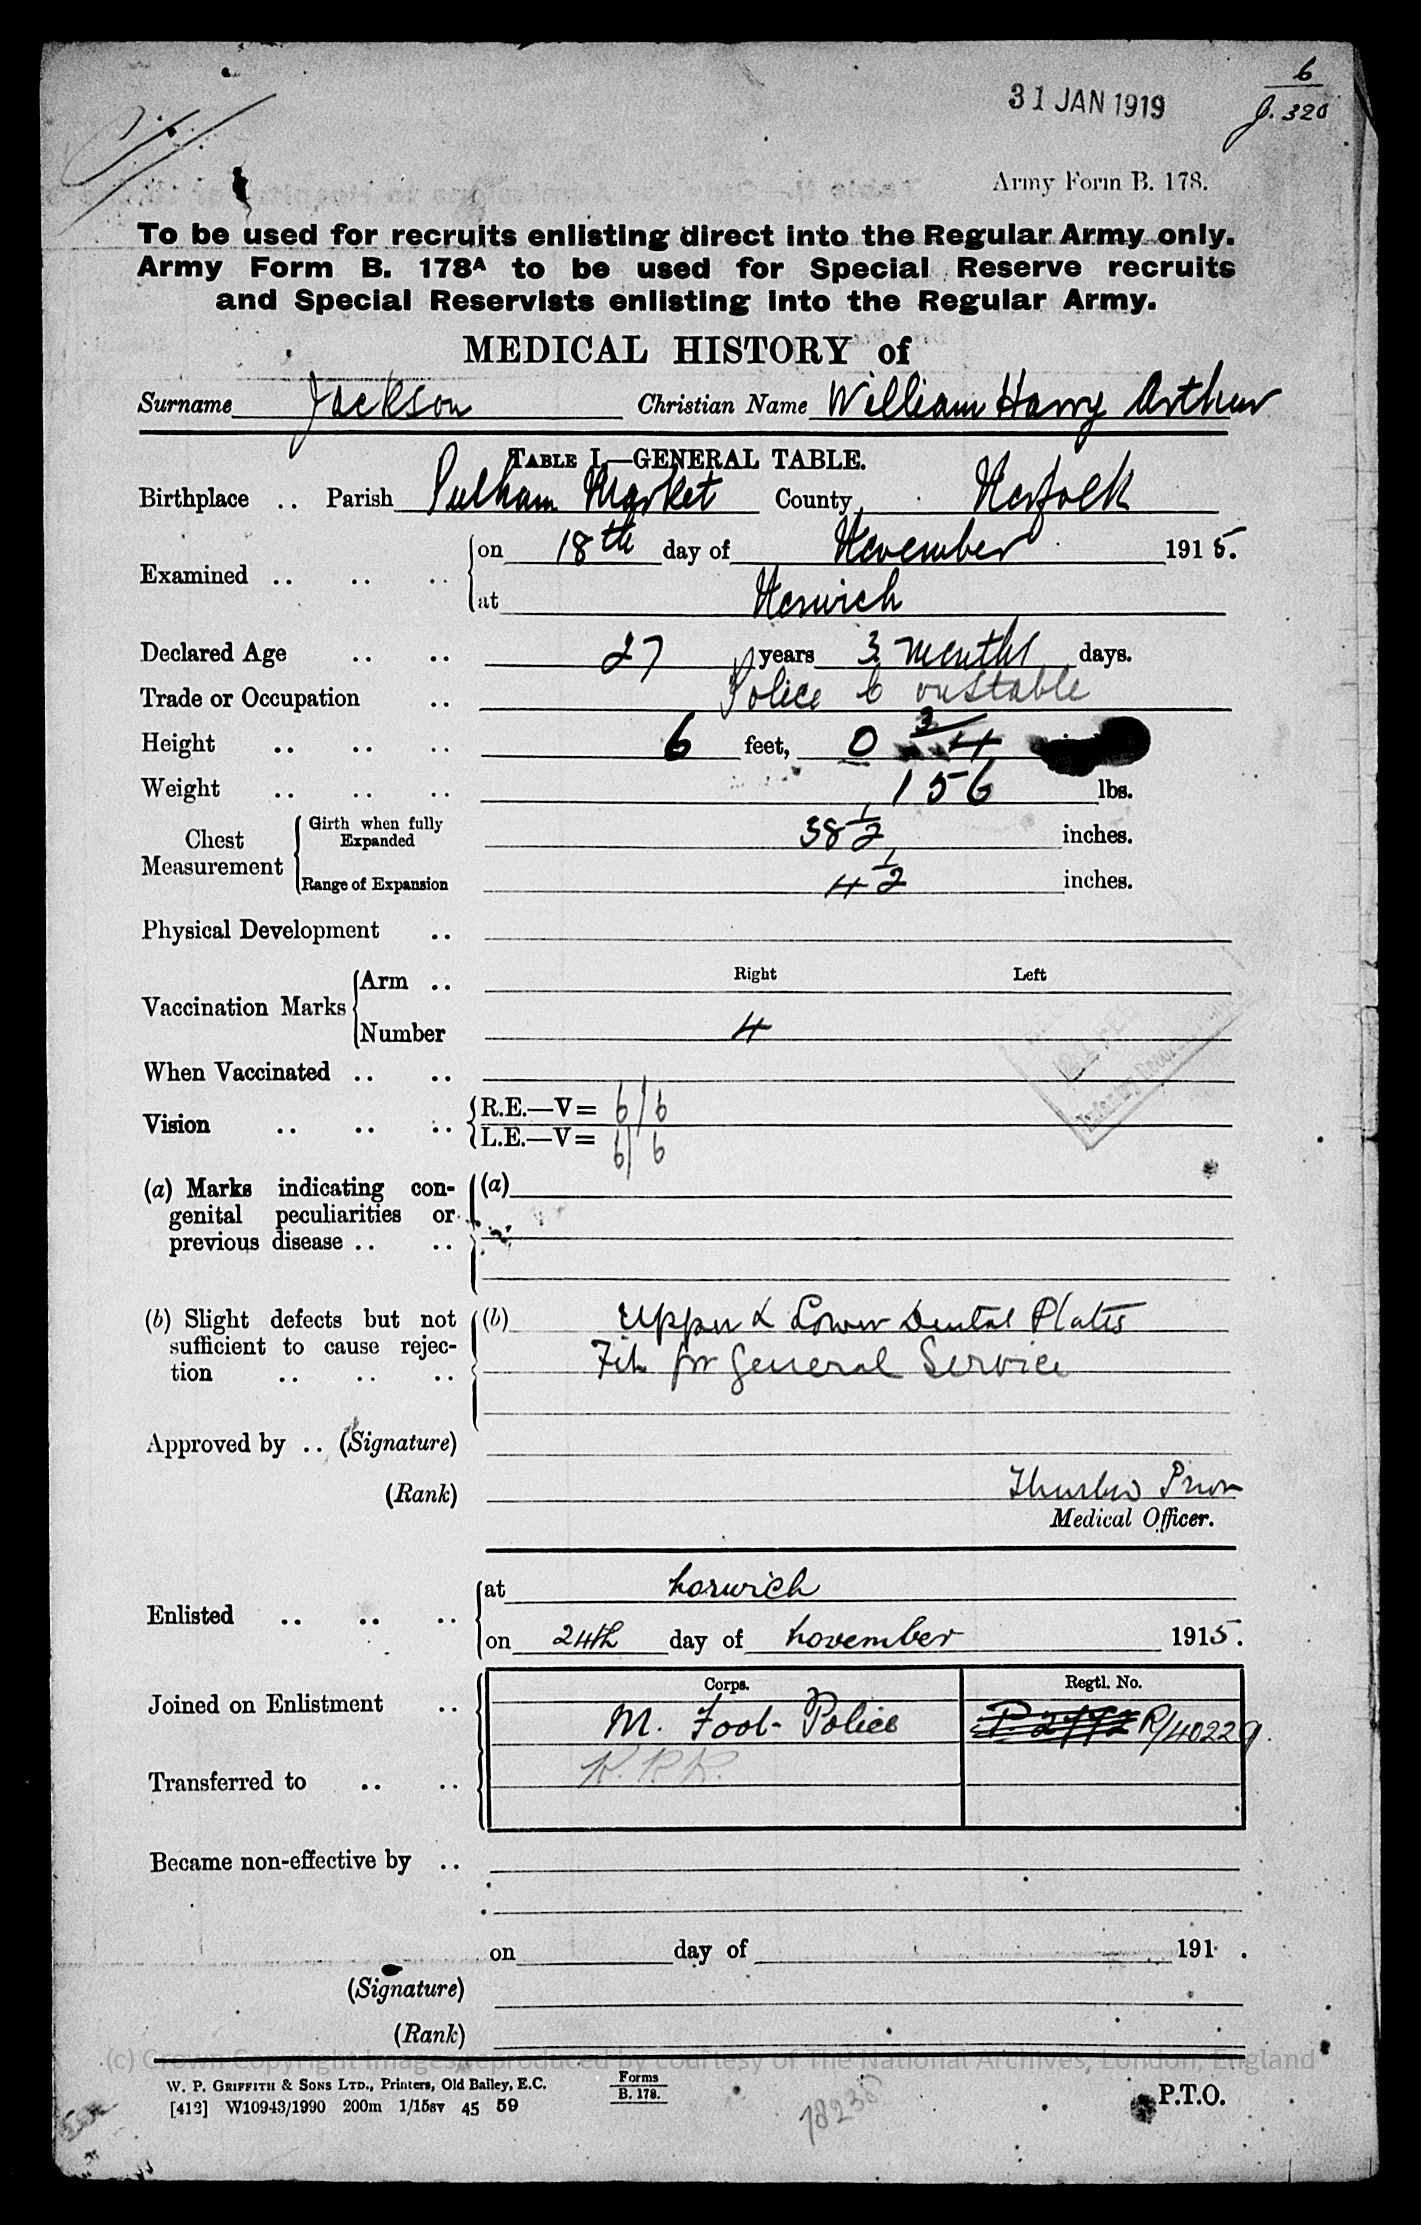 6
31 JAN 1919
J. 320
Army Form B. 178.
To be used for recruits enlisting direct into the Regular Army only.
Army Form B. 178A to be used for Special Reserve recruits
and Special Reservists enlisting into the Regular Army.
MEDICAL HISTORY of
Surname Jackson Christian Name William Harry Arthur
TABLE I.—GENERAL TABLE.
Birthplace .. Parish Pulham Market County Norfolk
Examined .. .. .. on 18th day of November 1915.
at Norwich
Declared Age .. .. 27 years 3 months days.
Trade or Occupation .. Police Constable
Height .. .. .. 6 feet, 0 3/4
Weight .. .. .. 156 lbs.
Chest Measurement Girth when fully Expanded 38 1/2 inches.
Range of Expansion 4 1/2 inches.
Physical Development ..
Right Left
Vaccination Marks Arm ..
Number 4
When Vaccinated .. ..
Vision .. .. .. R.E.—V= 6/6
L.E.—V= 6/6
(a) Marks indicating con- (a)
genital peculiarities or
previous disease .. ..
(b) Slight defects but not (b) Upper & Lower Dental Plates
sufficient to cause rejec- Fit for General Service
tion .. .. ..
Approved by .. (Signature)
(Rank) Prior
Medical Officer.
Enlisted .. .. .. at Norwich
on 24th day of November 1915.
Corps. Regtl. No.
Joined on Enlistment .. M. Foot Police P 2772 R/40229.
Transferred to .. .. K.R.R.
Became non-effective by ..
on day of 191 .
(Signature)
(Rank)
(c) Crown Copyright Images reproduced by courtesy of The National Archives, London, England
W. P. GRIFFITH & SONS LTD., Printers, Old Bailey, E.C. Forms
[412] W10943/1990 200m 1/15sv 45 59 B. 178. P.T.O.